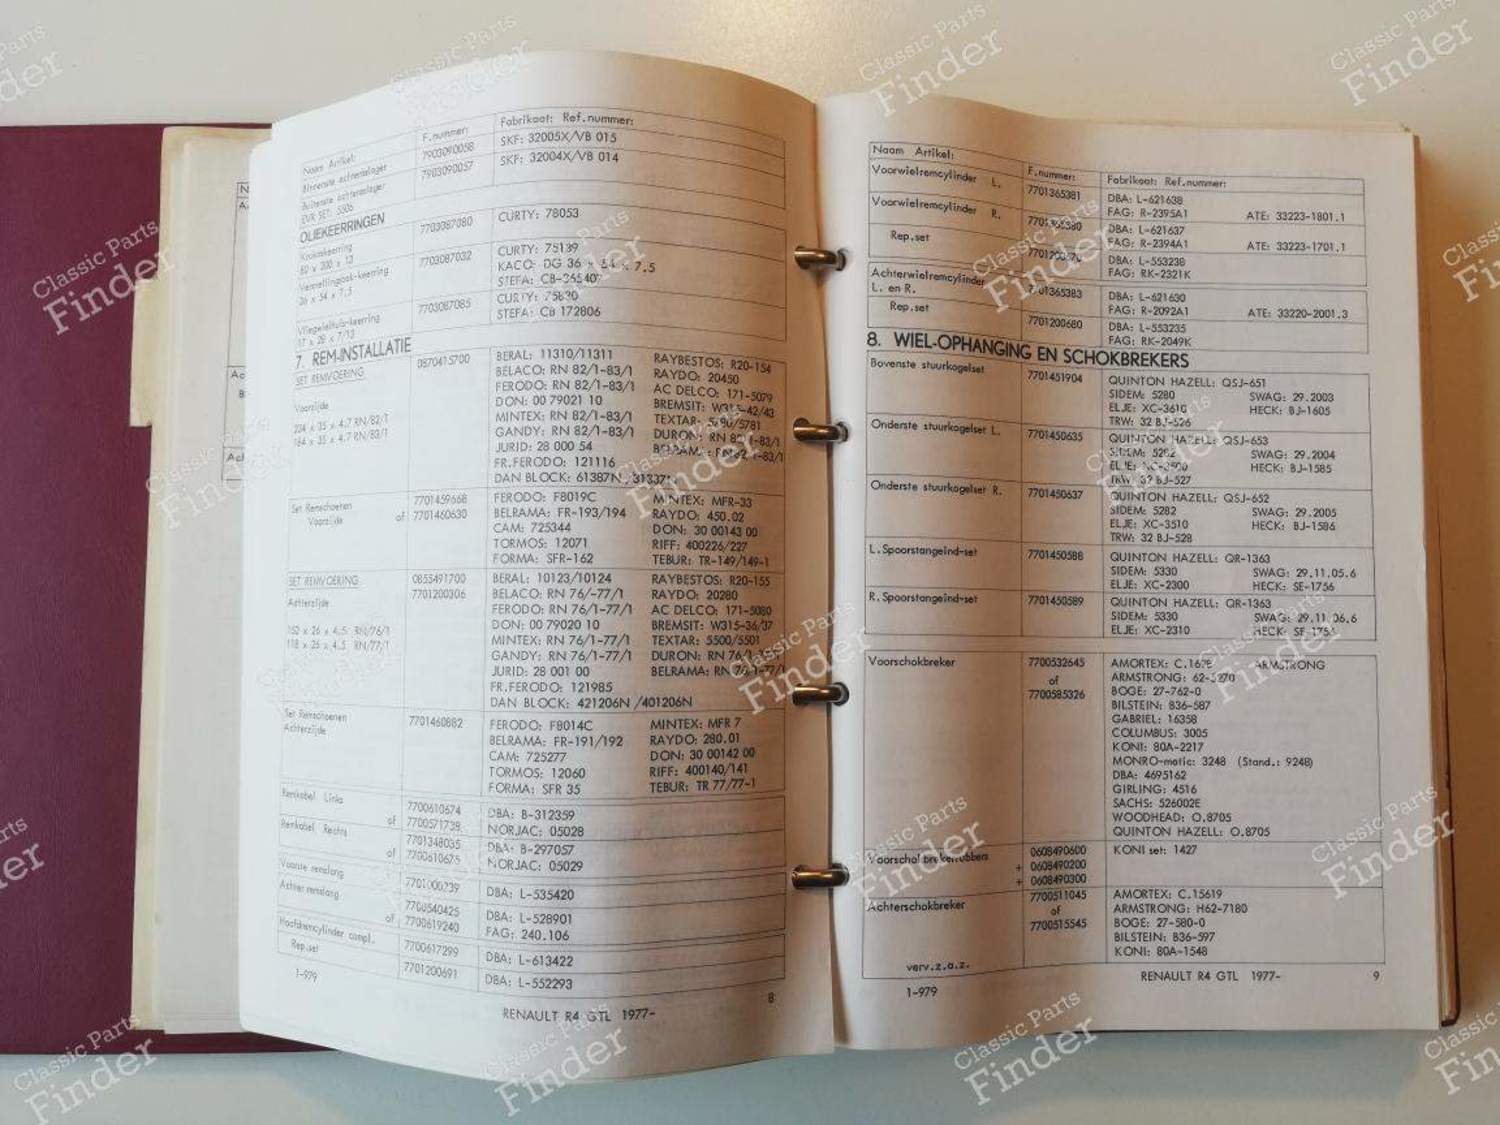 Naam Artikel: F.nummer: Fabrikaat: Ref.nummer:
Binnenste achternaaflager 7903090058 SKF: 32005X/VB 015
Buitenste achternaaflager 7903090057 SKF: 32004X/VB 014
EVR SET: 5506
OLIEKEERRINGEN
Krukaskeerring 7703087080 CURTY: 78053
80 x 100 x 13
Versnellingsbak-keerring 7703087032 CURTY: 75139
36 x 54 x 7,5 KACO: DG 36 x 54 x 7.5
STEFA: CB-365407
Vliegwielhuls-keerring 7703087085 CURTY: 75830
17 x 29 x 7/13 STEFA: CB 172806
7. REM-INSTALLATIE
SET REMVOERING 0870415700 BERAL: 11310/11311 RAYBESTOS: R20-154
BELACO: RN 82/1-83/1 RAYDO: 20450
Voorzijde FERODO: RN 82/1-83/1 AC DELCO: 171-5079
DON: 00 79021 10 BREMSIT: W315-42/43
234 x 35 x 4.7 RN/82/1 MINTEX: RN 82/1-83/1 TEXTAR: 5780/5781
184 x 35 x 4.7 RN/83/1 GANDY: RN 82/1-83/1 DURON: RN 82/1-83/1
JURID: 28 000 54 BELRAMA: RN82/1-83/1
FR.FERODO: 121116
DAN BLOCK: 61387N/31337N
Set Remschoenen 7701459668 FERODO: F8019C MINTEX: MFR-33
Voorzijde of 7701460630 BELRAMA: FR-193/194 RAYDO: 450.02
CAM: 725344 DON: 30 00143 00
TORMOS: 12071 RIFF: 400226/227
FORMA: SFR-162 TEBUR: TR-149/149-1
SET REMVOERING 0855491700 BERAL: 10123/10124 RAYBESTOS: R20-155
7701200306 BELACO: RN 76/-77/1 RAYDO: 20280
Achterzijde FERODO: RN 76/1-77/1 AC DELCO: 171-5080
DON: 00 79020 10 BREMSIT: W315-36/37
152 x 26 x 4,5 RN/76/1 MINTEX: RN 76/1-77/1 TEXTAR: 5500/5501
118 x 26 x 4,5 RN/77/1 GANDY: RN 76/1-77/1 DURON: RN 76/1-77/1
JURID: 28 001 00 BELRAMA: RN 76/1-77/1
FR.FERODO: 121985
DAN BLOCK: 421206N /401206N
Set Remschoenen 7701460882 FERODO: F8014C MINTEX: MFR 7
Achterzijde BELRAMA: FR-191/192 RAYDO: 280.01
CAM: 725277 DON: 30 00142 00
TORMOS: 12060 RIFF: 400140/141
FORMA: SFR 35 TEBUR: TR 77/77-1
Remkabel Links 7700610674 DBA: B-312359
of 7700571738 NORJAC: 05028
Remkabel Rechts 7701348035 DBA: B-297057
of 7700610675 NORJAC: 05029
Voorste remslang 7701000739 DBA: L-535420
Achter remslang 7700540425 DBA: L-528901
of 7700619240 FAG: 240.106
Hoofdremcylinder compl. 7700617299 DBA: L-613422
Rep.set 7701200691 DBA: L-552293
1-979 8
RENAULT R4 GTL 1977-
Naam Artikel: F.nummer: Fabrikaat: Ref.nummer:
Voorwielremcylinder L. 7701365381 DBA: L-621638
FAG: R-2395A1 ATE: 33223-1801.1
Voorwielremcylinder R. 7701365380 DBA: L-621637
FAG: R-2394A1 ATE: 33223-1701.1
Rep.set DBA: L-553238
FAG: RK-2321K
Achterwielremcylinder 7701365383 DBA: L-621630
L. en R. FAG: R-2092A1 ATE: 33220-2001.3
Rep.set 7701200680 DBA: L-553235
FAG: RK-2049K
8. WIEL-OPHANGING EN SCHOKBREKERS
Bovenste stuurkogelset 7701451904 QUINTON HAZELL: QSJ-651
SIDEM: 5280 SWAG: 29.2003
ELJE: XC-3610 HECK: BJ-1605
TRW: 32 BJ-526
Onderste stuurkogelset L. 7701450635 QUINTON HAZELL: QSJ-653
SIDEM: 5282 SWAG: 29.2004
ELJE: XC-3500 HECK: BJ-1585
TRW: 32 BJ-527
Onderste stuurkogelset R. 7701450637 QUINTON HAZELL: QSJ-652
SIDEM: 5282 SWAG: 29.2005
ELJE: XC-3510 HECK: BJ-1586
TRW: 32 BJ-528
L.Spoorstangeind-set 7701450588 QUINTON HAZELL: QR-1363
SIDEM: 5330 SWAG: 29.11.05.6
ELJE: XC-2300 HECK: SE-1756
R.Spoorstangeind-set 7701450589 QUINTON HAZELL: QR-1363
SIDEM: 5330 SWAG: 29.11.06.6
ELJE: XC-2310 HECK: SE-1756
Voorschokbreker 7700532645 AMORTEX: C.1628 ARMSTRONG
of ARMSTRONG: 62-5270
7700585326 BOGE: 27-762-0
BILSTEIN: B36-587
GABRIEL: 16358
COLUMBUS: 3005
KONI: 80A-2217
MONRO-matic: 3248 (Stand.: 9248)
DBA: 4695162
GIRLING: 4516
SACHS: 526002E
WOODHEAD: O.8705
QUINTON HAZELL: O.8705
Voorschokbrekerrubbers 0608490600 KONI set: 1427
+ 0608490200
+ 0608490300
Achterschokbreker 7700511045 AMORTEX: C.15619
of ARMSTRONG: H62-7180
7700515545 BOGE: 27-580-0
BILSTEIN: B36-597
verv.z.o.z. KONI: 80A-1548
1-979 RENAULT R4 GTL 1977- 9
Classic Parts
Finder